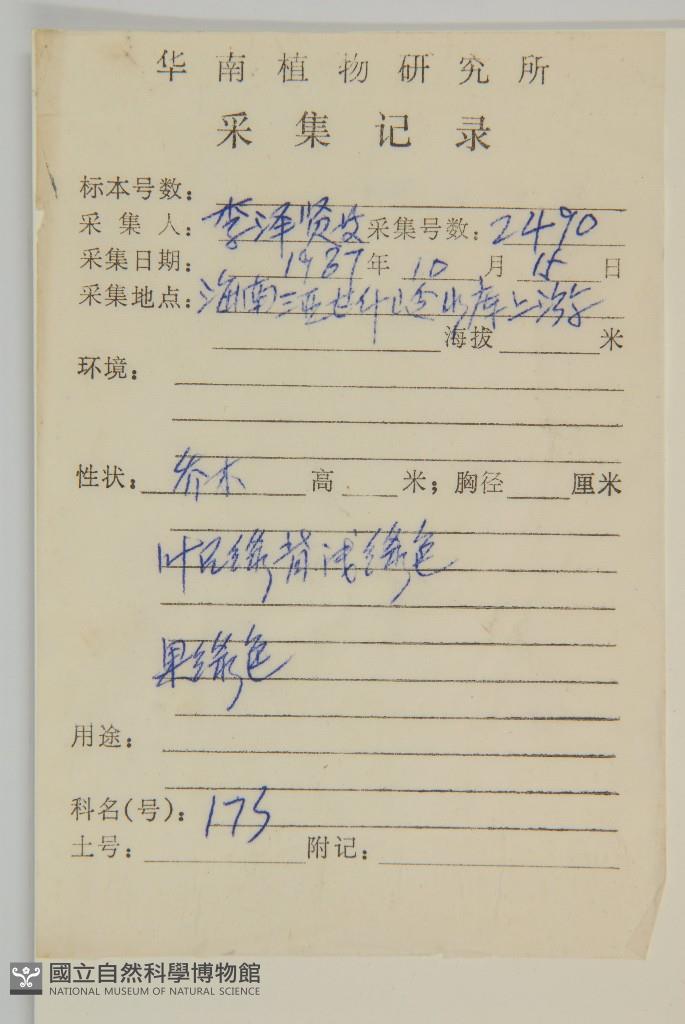 华南植物研究所
采集记录
标本号数:
采集人: 李泽贤 采集号数: 2490
采集日期: 1987年 10月 15日
采集地点: 海南三亚 水库上游
海拔 米
环境:
性状: 乔木 高 米; 胸径 厘米
叶 绿 背浅绿色
果绿色
用途:
科名(号): 173
土号: 附记:
國立自然科學博物館
NATIONAL MUSEUM OF NATURAL SCIENCE